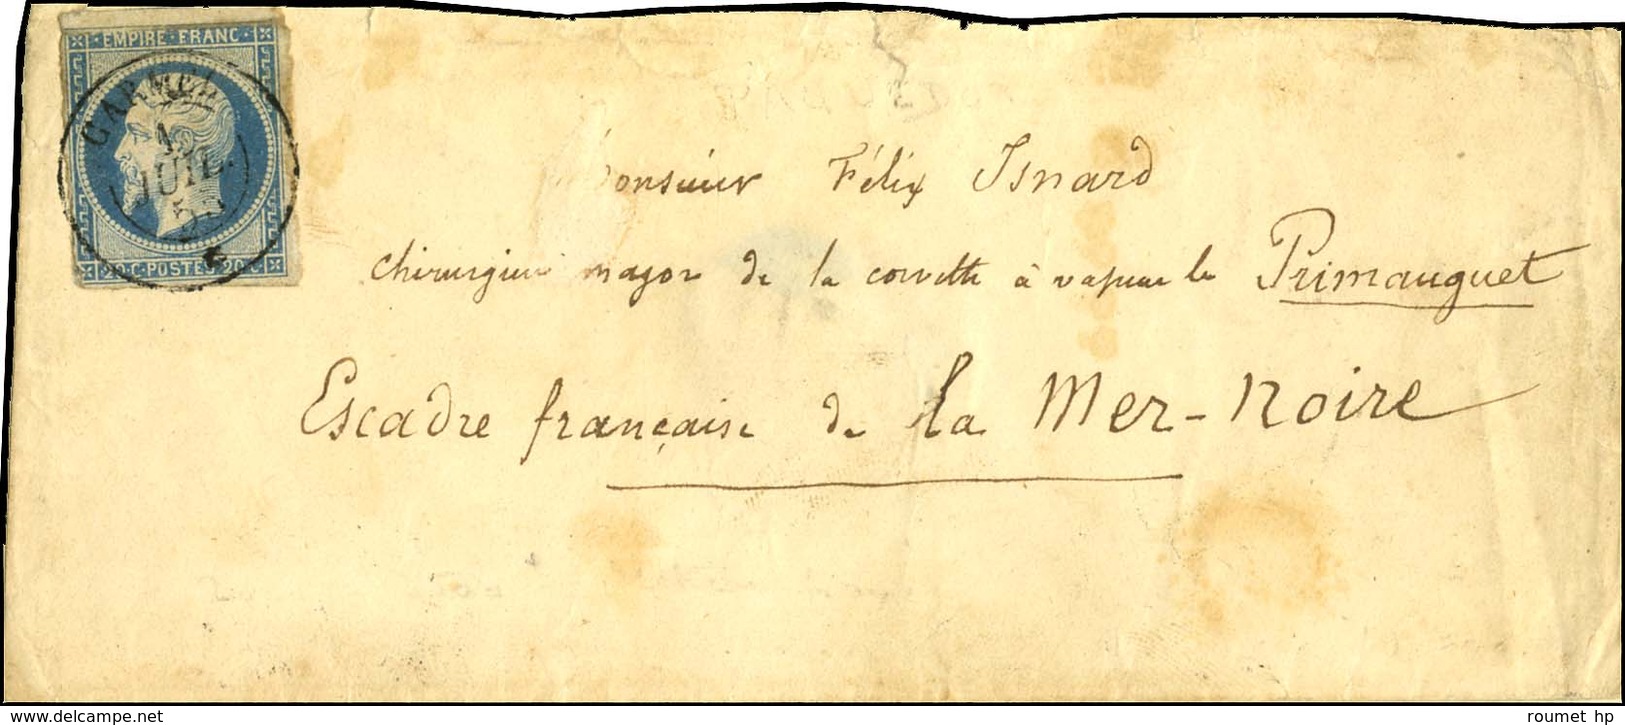 EMPIRE FRANC
JUIL.
20 C. POSTES 20 C
Monsieur Félix Isnard
chirurgien major de la corvette à vapeur le Primauguet
Escadre française de la Mer-Noire
roumet hp